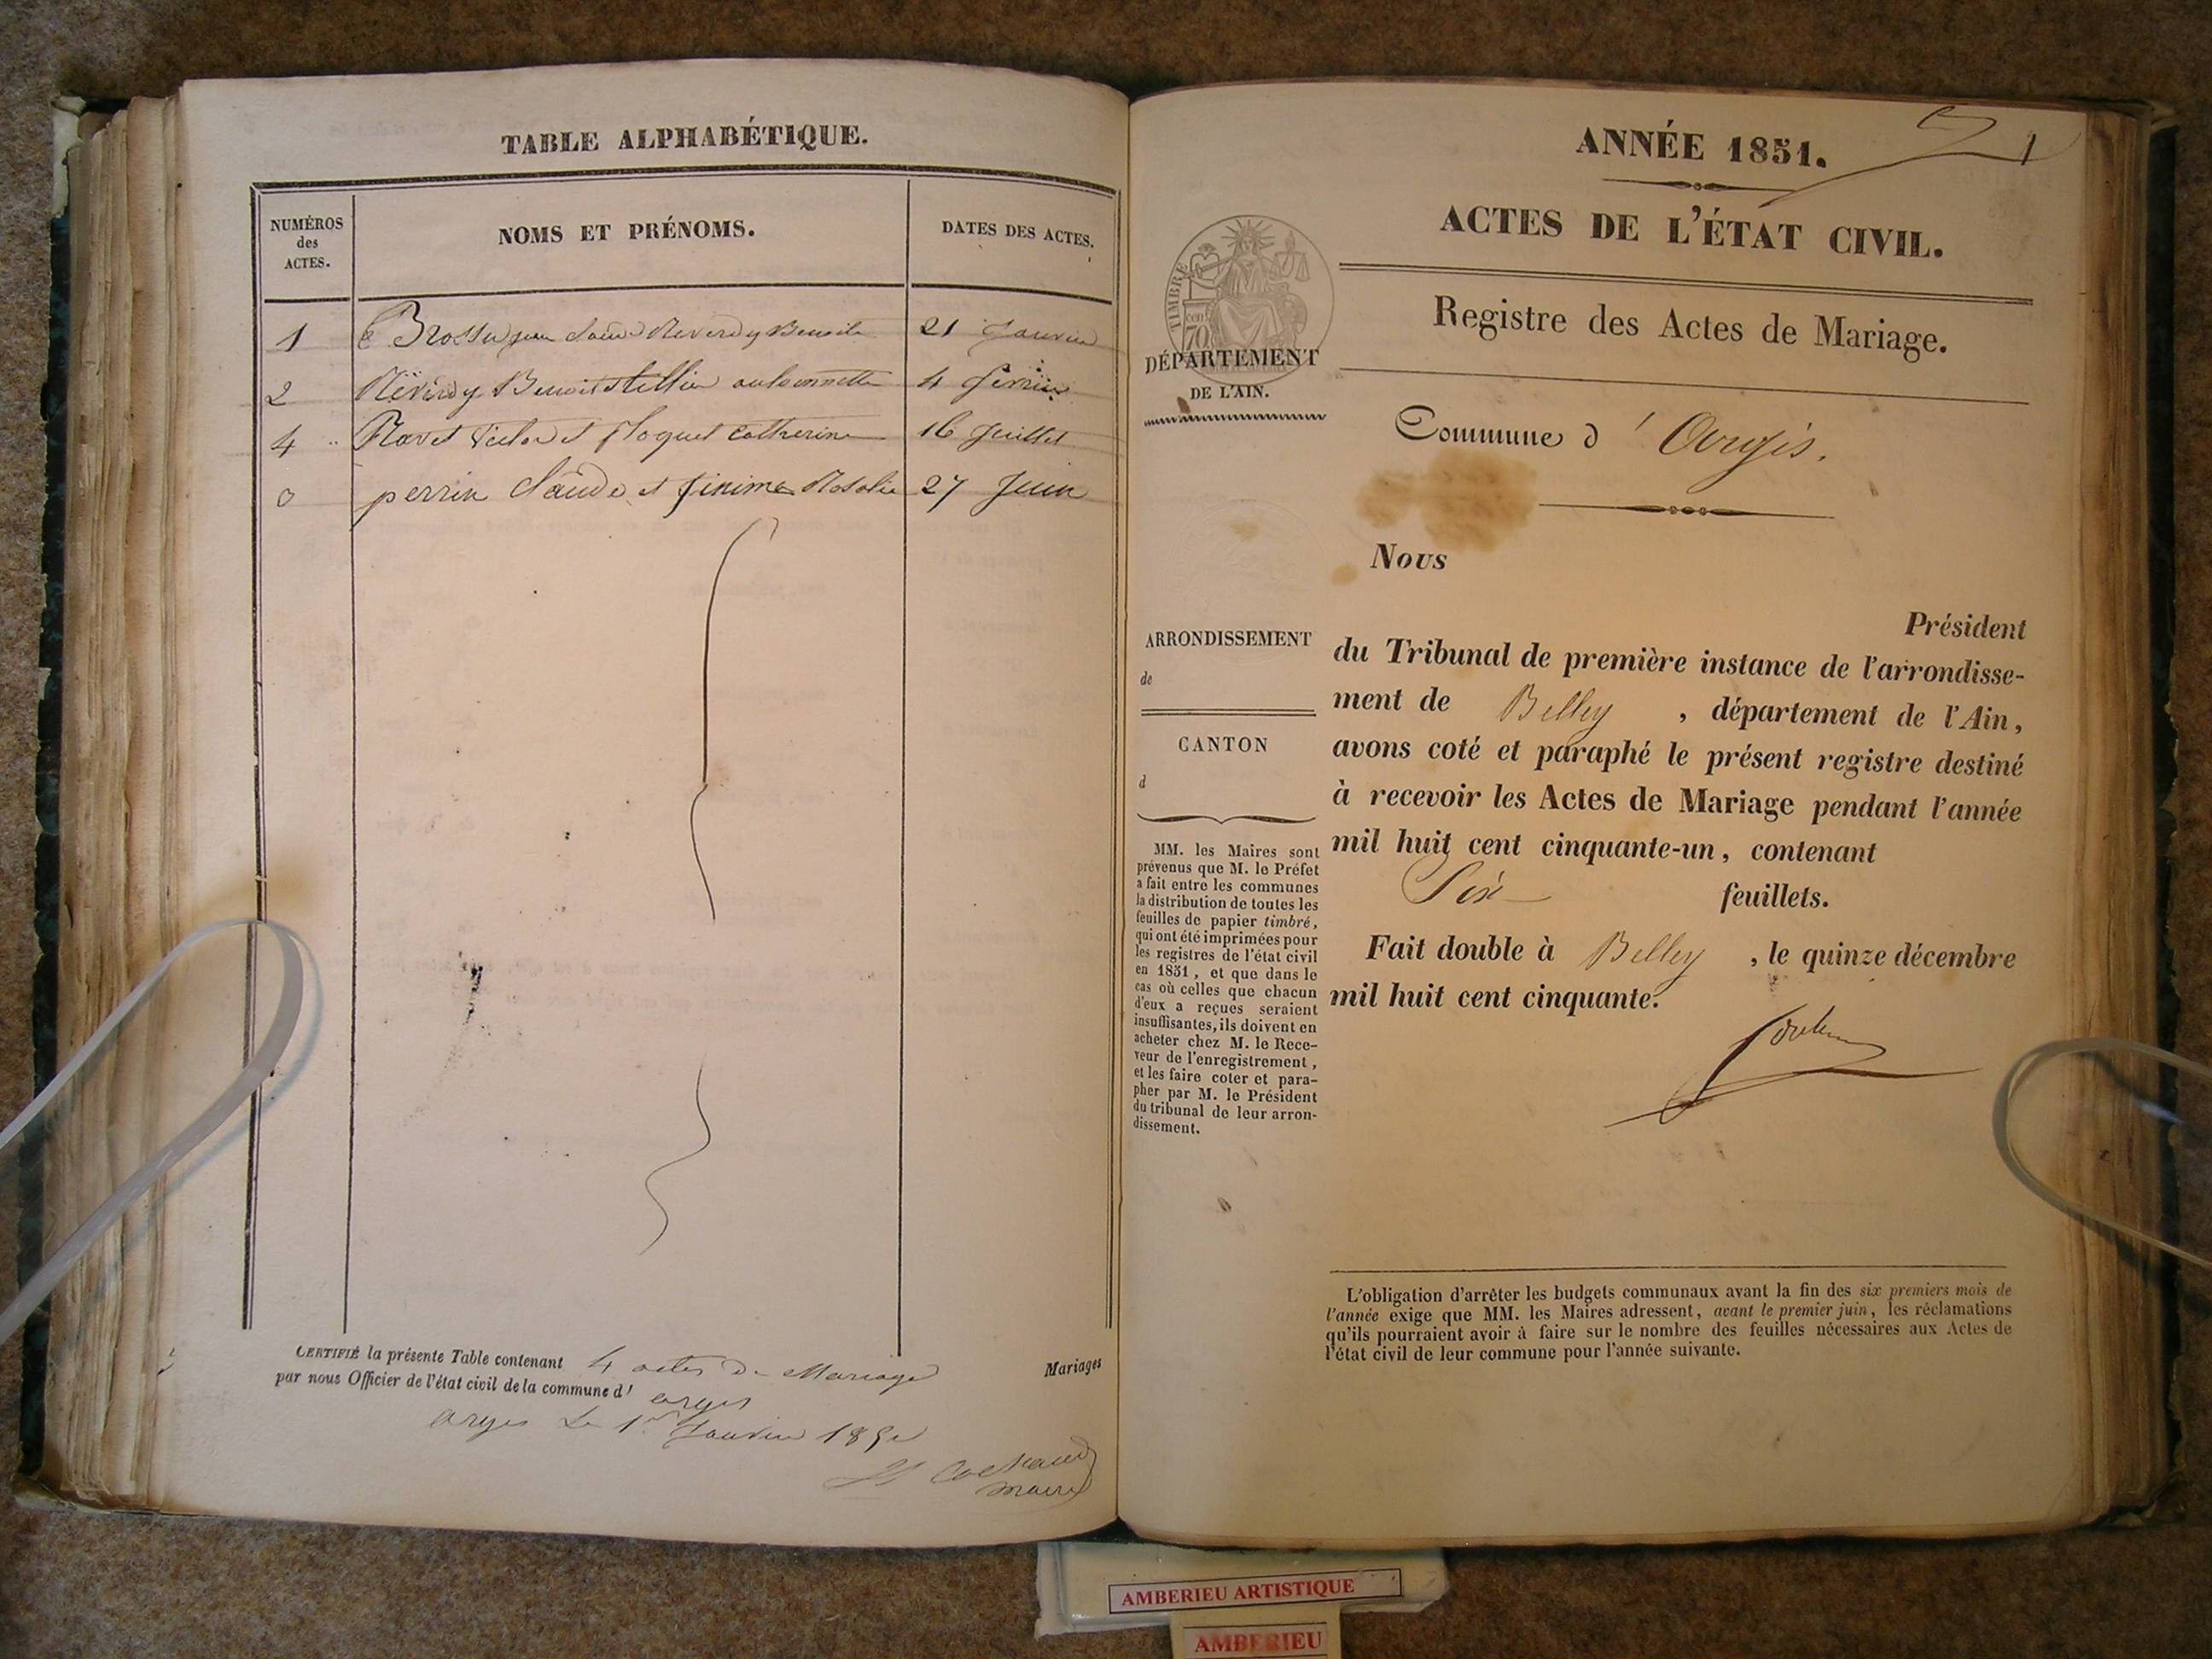 TABLE ALPHABÉTIQUE.
NUMÉROS
des
ACTES.
NOMS ET PRÉNOMS.
DATES DES ACTES.
1 Jean Reverdy Benoite 21 Janvier
2 Réverdy Benoit et 4
4 Ravet Victor et Floquet Catherine 16 Juillet
0 perrin Claude et Rosalie 27 Juin
CERTIFIÉ la présente Table contenant 4 actes de Mariage Mariages
par nous Officier de l'état civil de la commune d' arges
arges Le 1er Janvier
maire
ANNÉE 1851.
1
ACTES DE L'ÉTAT CIVIL.
Registre des Actes de Mariage.
TIMBRE
70 cent
DÉPARTEMENT
DE L'AIN.
Commune d' Argis.
Nous
Président
du Tribunal de première instance de l'arrondisse-
ment de Belley , département de l'Ain,
avons coté et paraphé le présent registre destiné
à recevoir les Actes de Mariage pendant l'année
mil huit cent cinquante-un, contenant
Six feuillets.
Fait double à Belley , le quinze décembre
mil huit cent cinquante.
ARRONDISSEMENT
de
CANTON
d
MM. les Maires sont
prévenus que M. le Préfet
a fait entre les communes
la distribution de toutes les
feuilles de papier timbré,
qui ont été imprimées pour
les registres de l'état civil
en 1851, et que dans le
cas où celles que chacun
d'eux a reçues seraient
insuffisantes, ils doivent en
acheter chez M. le Rece-
veur de l'enregistrement,
et les faire coter et para-
pher par M. le Président
du tribunal de leur arron-
dissement.
L'obligation d'arrêter les budgets communaux avant la fin des six premiers mois de
l'année exige que MM. les Maires adressent, avant le premier juin, les réclamations
qu'ils pourraient avoir à faire sur le nombre des feuilles nécessaires aux Actes de
l'état civil de leur commune pour l'année suivante.
AMBERIEU ARTISTIQUE
AMBERIEU